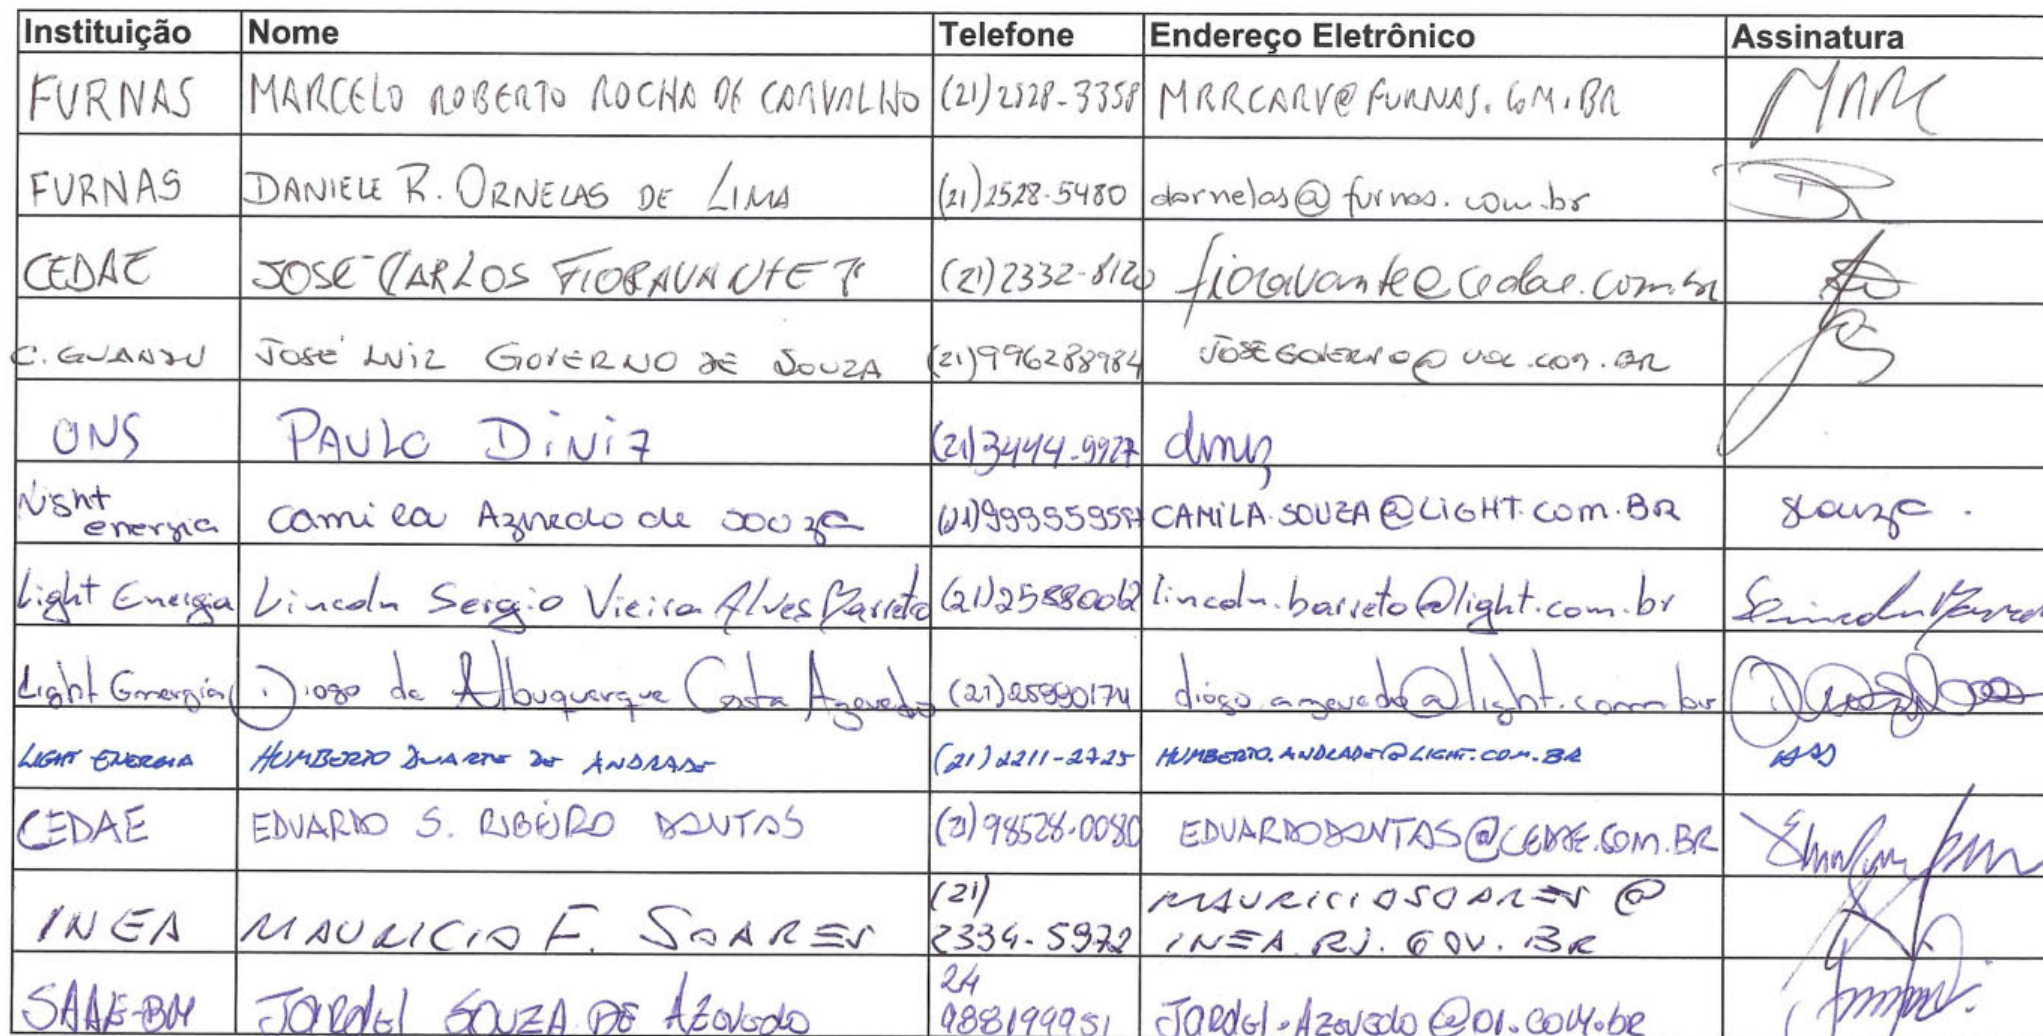 Instituição Nome Telefone Endereço Eletrônico Assinatura
FURNAS MARCELO ROBERTO ROCHA DE CARVALHO (21)2528-3358 MRRCARV@FURNAS.COM.BR MRRC
FURNAS DANIELE R. ORNELAS DE LIMA (21)2528-5480 dornelas@furnas.com.br
CEDAE JOSÉ CARLOS FIORAVANTE (21)2332-8120 fioravante@cedae.com.br
C. GUANDU JOSÉ LUIZ GOVERNO DE SOUZA (21)996288984 JOSEGOVERNO@UOL.COM.BR
ONS PAULO DINIZ (21)3444-9927 diniz
Light energia Camila Azevedo de Souza CAMILA.SOUZA@LIGHT.COM.BR Souza.
Light Energia Lincoln Sergio Vieira Alves Barreto (21)25880062 lincoln.barreto@light.com.br
Light Energia Diogo de Albuquerque Costa Azevedo (21)25990174 diogo.azevedo@light.com.br
LIGHT ENERGIA HUMBERTO DUARTE DE ANDRADE (21)2211-2725 HUMBERTO.ANDRADE@LIGHT.COM.BR
CEDAE EDUARDO S. RIBEIRO DANTAS (21)98528-0080 EDUARDODANTAS@CEDAE.COM.BR
INEA MAURICIO F. SOARES (21) 2334-5972 MAURICIOSOARES@
INEA.RJ.GOV.BR
SAAE-BM JARDEL SOUZA DE AZEVEDO 24 988199951 JARDEL.AZEVEDO@OI.COM.BR